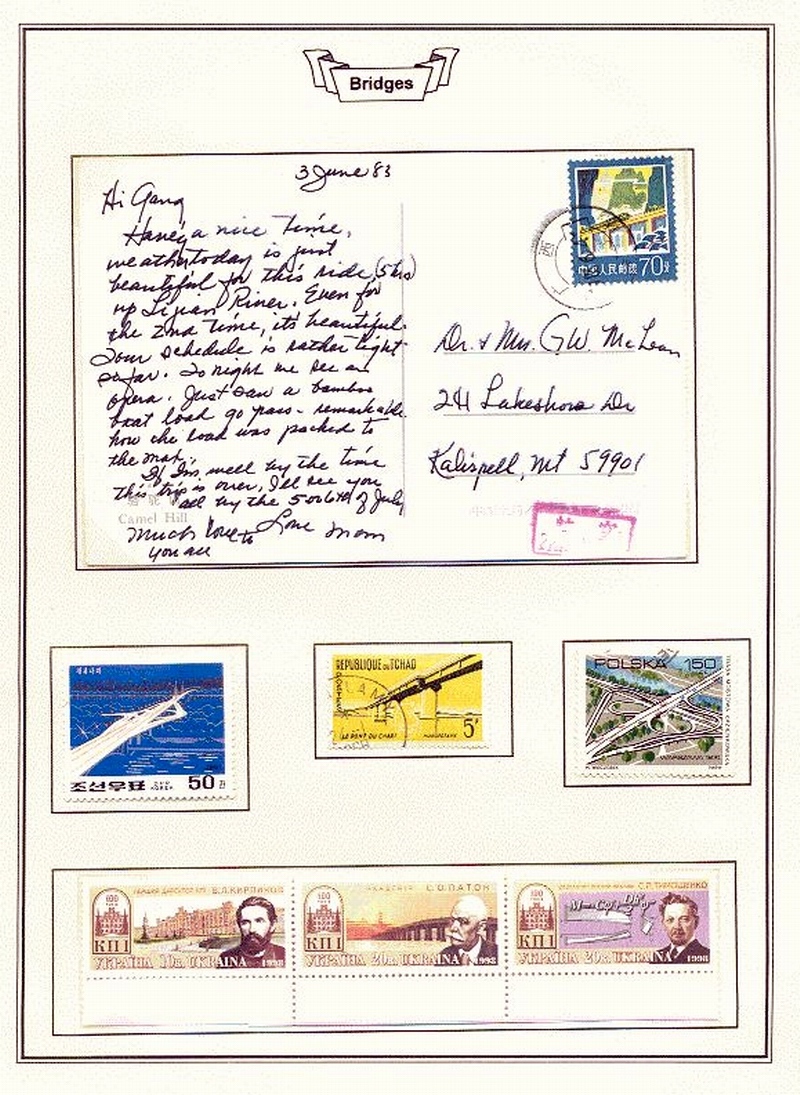 Bridges
3 June 83
Hi Gang
Having a nice time,
weather today is just
beautiful for this ride (5 hrs)
up Lijian River. Even for
the 2nd time, it's beautiful.
Our schedule is rather tight
so far. Tonight we see an
opera. Just saw a bamboo
boat load go pass - remarkable
how the load was packed to
the max.
If I'm well by the time
this trip is over, I'll see you
all by the 5 or 6th of July
Camel Hill
Much love to
you all
Love Mom
中国人民邮政 70分
Dr. & Mrs. G.W. McLean
241 Lakeshore Dr
Kalispell, Mt 59901
조선우표 50전
REPUBLIQUE DU TCHAD
LE PONT DU CHARI
5f
POLSKA 150
100
КПІ
В.Л.КИРПИЧОВ
УКРАЇНА 10к. UKRAINA 1998
100
КПІ
Є.О.ПАТОН
УКРАЇНА 20к. UKRAINA 1998
100
КПІ
УКРАЇНА 20к. UKRAINA 1998